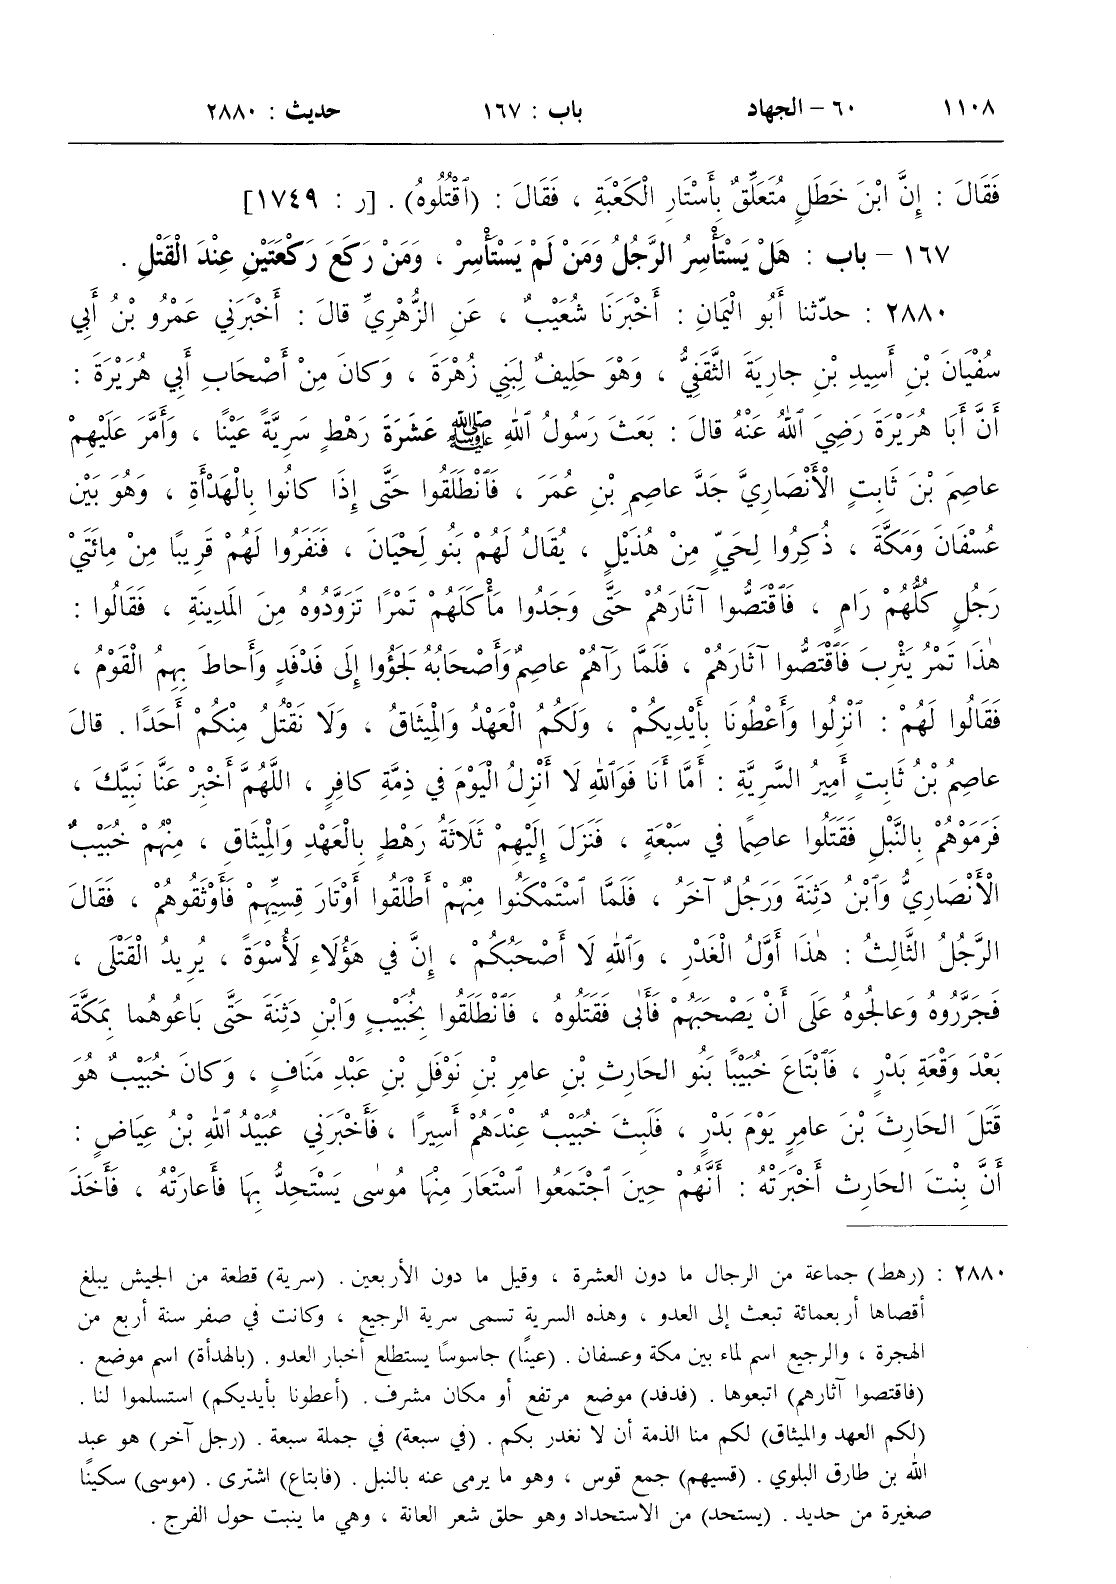 ١١٠٨ ٦٠ – الجهاد باب : ١٦٧ حديث : ٢٨٨٠
فَقَالَ : إِنَّ ابْنَ خَطَلٍ مُتَعَلِّقٌ بِأَسْتَارِ الْكَعْبَةِ ، فَقَالَ : (ٱقْتُلُوهُ) . [ر : ١٧٤٩]
١٦٧ – باب : هَلْ يَسْتَأْسِرُ الرَّجُلُ وَمَنْ لَمْ يَسْتَأْسِرْ ، وَمَنْ رَكَعَ رَكْعَتَيْنِ عِنْدَ الْقَتْلِ .
٢٨٨٠ : حدّثنا أَبُو الْيَمَانِ : أَخْبَرَنَا شُعَيْبٌ ، عَنِ الزُّهْرِيِّ قالَ : أَخْبَرَنِي عَمْرُو بْنُ أَبِي
سُفْيَانَ بْنِ أَسِيدِ بْنِ جارِيَةَ الثَّقَفِيُّ ، وَهْوَ حَلِيفٌ لِبَنِي زُهْرَةَ ، وَكانَ مِنْ أَصْحَابِ أَبِي هُرَيْرَةَ :
أَنَّ أَبَا هُرَيْرَةَ رَضِيَ ٱللهُ عَنْهُ قالَ : بَعَثَ رَسُولُ ٱللهِ ﷺ عَشَرَةَ رَهْطٍ سَرِيَّةً عَيْنًا ، وَأَمَّرَ عَلَيْهِمْ
عاصِمَ بْنَ ثَابِتٍ الْأَنْصَارِيَّ جَدَّ عاصِمِ بْنِ عُمَرَ ، فَٱنْطَلَقُوا حَتَّى إِذَا كانُوا بِالْهَدْأَةِ ، وَهُوَ بَيْنَ
عُسْفَانَ وَمَكَّةَ ، ذُكِرُوا لِحَيٍّ مِنْ هُذَيْلٍ ، يُقَالُ لَهُمْ بَنُو لَحْيَانَ ، فَنَفَرُوا لَهُمْ قَرِيبًا مِنْ مِائَتَيْ
رَجُلٍ كُلُّهُمْ رَامٍ ، فَٱقْتَصُّوا آثارَهُمْ حَتَّى وَجَدُوا مَأْكَلَهُمْ تَمْرًا تَزَوَّدُوهُ مِنَ الْمَدِينَةِ ، فَقَالُوا :
هٰذَا تَمْرُ يَثْرِبَ فَٱقْتَصُّوا آثَارَهُمْ ، فَلَمَّا رَآهُمْ عاصِمٌ وَأَصْحَابُهُ لَجَؤُوا إِلَى فَدْفَدٍ وَأَحاطَ بِهِمُ الْقَوْمُ ،
فَقَالُوا لَهُمْ : ٱنْزِلُوا وَأَعْطُونَا بِأَيْدِيكُمْ ، وَلَكُمُ الْعَهْدُ وَالْمِيثَاقُ ، وَلَا نَقْتُلُ مِنْكُمْ أَحَدًا . قالَ
عاصِمُ بْنُ ثَابِتٍ أَمِيرُ السَّرِيَّةِ : أَمَّا أَنَا فَوَٱللهِ لَا أَنْزِلُ الْيَوْمَ في ذِمَّةِ كافِرٍ ، اللَّهُمَّ أَخْبِرْ عَنَّا نَبِيَّكَ ،
فَرَمَوْهُمْ بِالنَّبْلِ فَقَتَلُوا عاصِمًا في سَبْعَةٍ ، فَنَزَلَ إِلَيْهِمْ ثَلَاثَةُ رَهْطٍ بِالْعَهْدِ وَالْمِيثَاقِ ، مِنْهُمْ خُبَيْبٌ
الْأَنْصَارِيُّ وَٱبْنُ دَثِنَةَ وَرَجُلٌ آخَرُ ، فَلَمَّا ٱسْتَمْكَنُوا مِنْهُمْ أَطْلَقُوا أَوْتَارَ قِسِيِّهِمْ فَأَوْثَقُوهُمْ ، فَقَالَ
الرَّجُلُ الثَّالِثُ : هٰذَا أَوَّلُ الْغَدْرِ ، وَٱللهِ لَا أَصْحَبُكُمْ ، إِنَّ في هَؤُلَاءِ لَأُسْوَةً ، يُرِيدُ الْقَتْلَى ،
فَجَرَّرُوهُ وَعالَجُوهُ عَلَى أَنْ يَصْحَبَهُمْ فَأَبَى فَقَتَلُوهُ ، فَٱنْطَلَقُوا بِخُبَيْبٍ وَابْنِ دَثِنَةَ حَتَّى بَاعُوهُما بِمَكَّةَ
بَعْدَ وَقْعَةِ بَدْرٍ ، فَٱبْتَاعَ خُبَيْبًا بَنُو الحَارِثِ بْنِ عامِرِ بْنِ نَوْفَلِ بْنِ عَبْدِ مَنَافٍ ، وَكانَ خُبَيْبٌ هُوَ
قَتَلَ الحَارِثَ بْنَ عامِرٍ يَوْمَ بَدْرٍ ، فَلَبِثَ خُبَيْبٌ عِنْدَهُمْ أَسِيرًا ، فَأَخْبَرَنِي عُبَيْدُ ٱللهِ بْنُ عِيَاضٍ :
أَنَّ بِنْتَ الحَارِثِ أَخْبَرَتْهُ : أَنَّهُمْ حِينَ ٱجْتَمَعُوا ٱسْتَعَارَ مِنْهَا مُوسٰى يَسْتَحِدُّ بِهَا فَأَعارَتْهُ ، فَأَخَذَ
٢٨٨٠ : (رهط) جماعة من الرجال ما دون العشرة ، وقيل ما دون الأربعين . (سرية) قطعة من الجيش يبلغ
أقصاها أربعمائة تبعث إلى العدو ، وهذه السرية تسمى سرية الرجيع ، وكانت في صفر سنة أربع من
الهجرة ، والرجيع اسم لماء بين مكة وعسفان . (عينًا) جاسوسًا يستطلع أخبار العدو . (بالهدأة) اسم موضع .
(فاقتصوا آثارهم) اتبعوها . (فدفد) موضع مرتفع أو مكان مشرف . (أعطونا بأيديكم) استسلموا لنا .
(لكم العهد والميثاق) لكم منا الذمة أن لا نغدر بكم . (في سبعة) في جملة سبعة . (رجل آخر) هو عبد
الله بن طارق البلوي . (قسيهم) جمع قوس ، وهو ما يرمى عنه بالنبل . (فابتاع) اشترى . (موسى) سكينًا
صغيرة من حديد . (يستحد) من الاستحداد وهو حلق شعر العانة ، وهي ما ينبت حول الفرج .